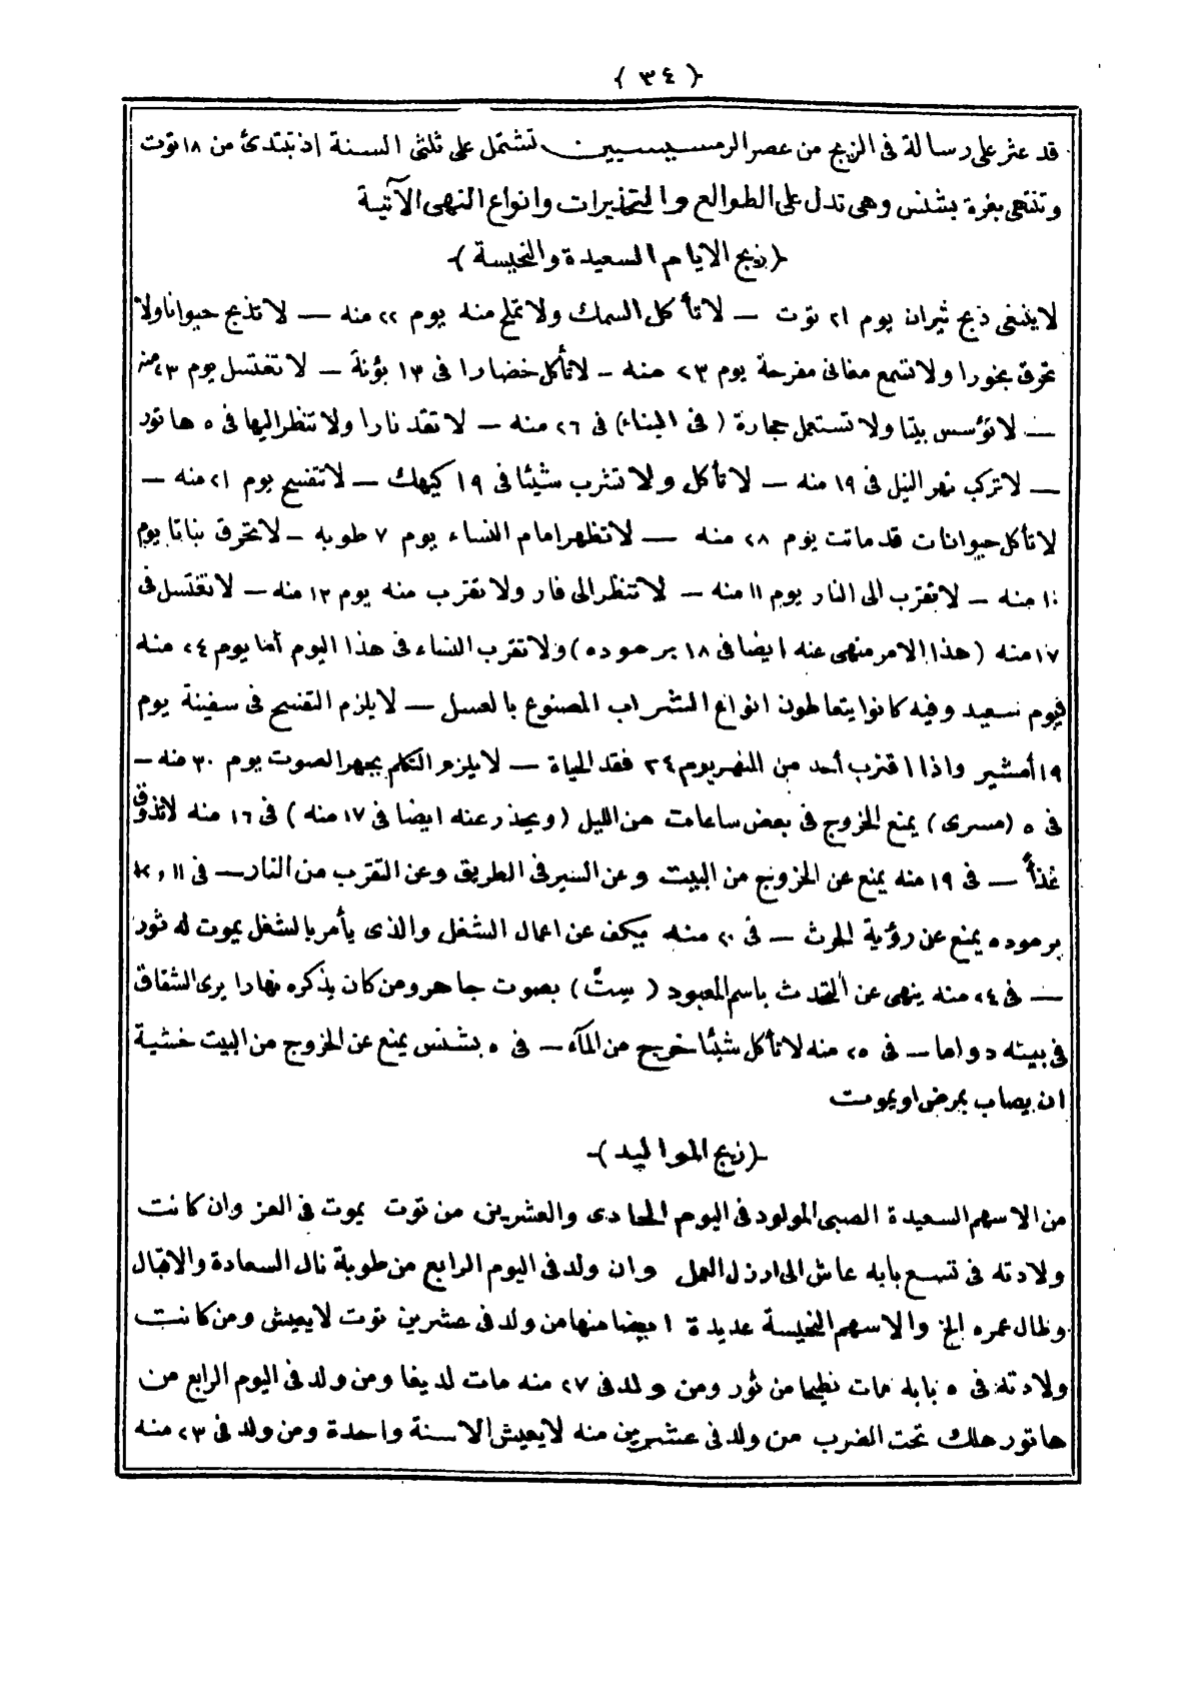 { ٣٤ }
قد عثر على رسالة فى الزيج من عصر الرمسيسيين تشتمل على ثلثى السنة اذ تبتدئ من ١٨ توت
وتنتهى بغرة بشنس وهى تدل على الطوالع والتحذيرات وانواع النهى الآتية
-(زيج الايام السعيدة والنحيسة)-
لا ينبغى ذبح ثيران يوم ٢١ توت — لا تأكل السمك ولا تملح منه يوم ٢٢ منه — لا تذبح حيوانا ولا
تحرق بخورا ولا تسمع مغانى مفرحة يوم ٢٣ منه - لا تأكل خضارا فى ١٣ بؤنة — لا تغتسل يوم ٢٣ منه
— لا تؤسس بيتا ولا تستعمل حجارة ( فى البناء) فى ٢٦ منه — لا تقد نارا ولا تنظر اليها فى ٥ هاتور
— لا تركب نهر النيل فى ١٩ منه — لا تأكل ولا تشرب شيئا فى ١٩ كيهك — لا تتفسح يوم ٢١ منه —
لا تأكل حيوانات قد ماتت يوم ٢٨ منه — لا تظهر امام النساء يوم ٧ طوبه - لا تحرق نباتا يوم
١٠ منه — لا تقترب الى النار يوم ١١ منه — لا تنظر الى فار ولا تقترب منه يوم ١٢ منه — لا تغتسل فى
١٧ منه (هذا الامر منهى عنه ايضا فى ١٨ برموده) ولا تقرب النساء فى هذا اليوم أما يوم ٢٤ منه
فيوم سعيد وفيه كانوا يتعاطون انواع الشراب المصنوع بالعسل — لا يلزم التفسح فى سفينة يوم
١٩ أمشير واذا اقترب أحد من النهر يوم ٢٤ فقد الحياة — لا يلزم التكلم بجهر الصوت يوم ٣٠ منه —
فى ٥ (مسرى) يمنع الخروج فى بعض ساعات من الليل (ويحذر عنه ايضا فى ١٧ منه ) فى ١٦ منه لا تذوق
غذاً — فى ١٩ منه يمنع عن الخروج من البيت وعن السير فى الطريق وعن التقرب من النار — فى ١١,
برموده يمنع عن رؤية الحرث — فى ٢٠ منه يكف عن اعمال الشغل والذى يأمر بالشغل يموت له ثور
— فى ٢٤ منه ينهى عن التحدث باسم المعبود ( سِتْ ) بصوت جاهر ومن كان يذكره نهارا يرى الشقاق
فى بيته دواما — فى ٢٥ منه لا تأكل شيئا خرج من المآء — فى ٥ بشنس يمنع عن الخروج من البيت خشية
ان يصاب بمرض او يموت
-(زيج المواليد)-
من الاسهم السعيدة الصبى المولود فى اليوم الحادى والعشرين من توت يموت فى العز وان كانت
ولادته فى تسع بابه عاش الى ارذل العمل وان ولد فى اليوم الرابع من طوبة نال السعادة والاقبال
وطال عمره الخ والاسهم النحيسة عديدة ايضا منها من ولد فى عشرين توت لا يعيش ومن كانت
ولادته فى ٥ بابه مات نطيحا من ثور ومن ولد فى ٢٧ منه مات لديغا ومن ولد فى اليوم الرابع من
هاتور هلك تحت الضرب من ولد فى عشرين منه لا يعيش الا سنة واحدة ومن ولد فى ٢٣ منه